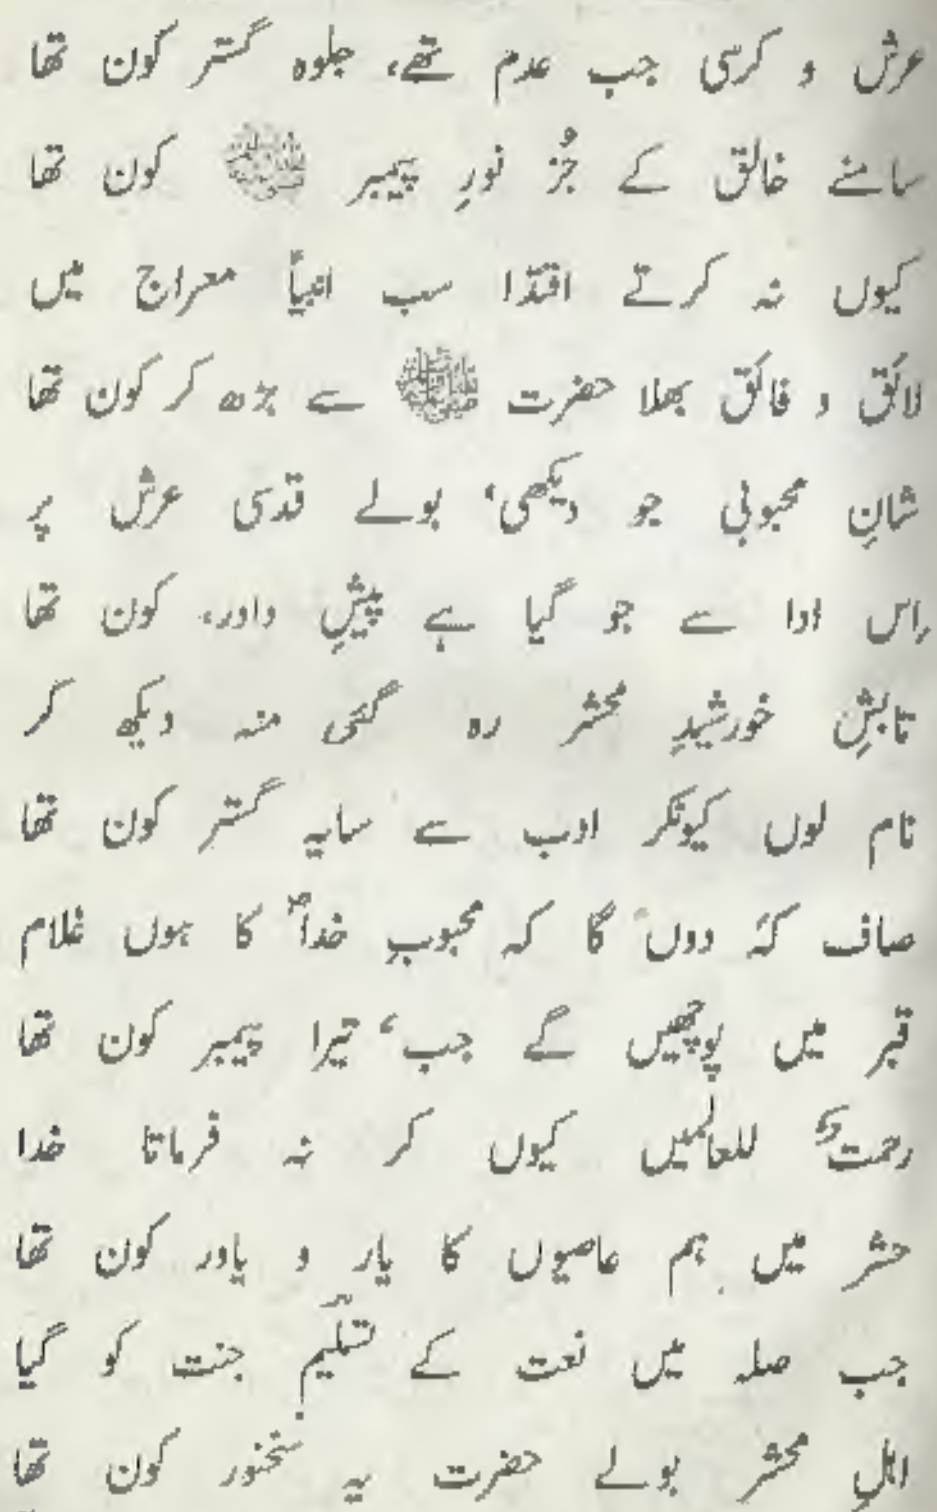 عرش و کرسی جب عدم تھے، جلوہ گستر کون تھا
سامنے خالق کے جُز نورِ پیمبر ﷺ کون تھا
کیوں نہ کرتے اقتدا سب انبیاؑ معراج میں
لائق و فائق بھلا حضرت ﷺ سے بڑھ کر کون تھا
شانِ محبوبی جو دیکھی، بولے قدسی عرش پر
اِس ادا سے جو گیا ہے پیشِ داور، کون تھا
تابشِ خورشیدِ محشر رہ گئی منہ دیکھ کر
نام لوں کیونکر ادب سے سایہ گستر کون تھا
صاف کہٗ دوں گا کہ محبوبِ خداؐ کا ہوں غلام
قبر میں پوچھیں گے جب، تیرا پیمبر کون تھا
رحمتؐ للعالمیں کیوں کر نہ فرماتا خدا
حشر میں ہم عاصیوں کا یار و یاور کون تھا
جب صلہ میں نعت کے تسلیمؔ جنت کو گیا
اہلِ محشر بولے حضرت یہ سخنور کون تھا